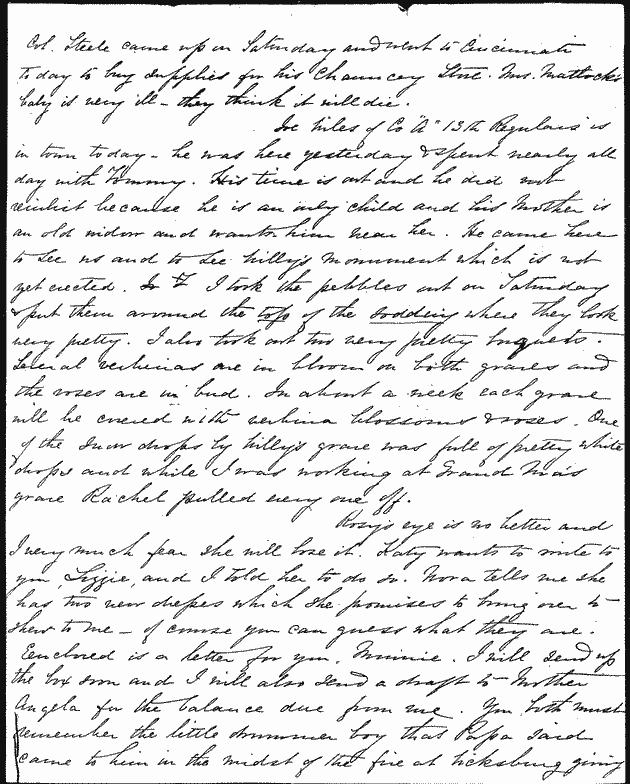 Col. Steele came up on Saturday and went to Cincinnati
to day to buy supplies for his Chauncey Store. Mrs. Matlock's
baby is very ill - they think it will die.
Joe Niles of Co "A" 13th Regulars is
in town today - he was here yesterday & spent nearly all
day with Tommy. His time is out and he did not
reinlist because he is an only child and his Mother is
an old widow and wants him near her. He came here
to see us and to see Willy's monument which is not
yet erected. I took the pebbles out on Saturday
& put them around the top of the sodding where they look
very pretty. I also took out two very pretty boquets.
Several verbenas are in bloom on both graves and
the roses are in bud. In about a week each grave
will be covered with verbina blossoms & roses. One
of the snow drops by Willy's grave was full of pretty white
drops and while I was working at Grand Ma's
grave Rachel pulled every one off.
Rosy's eye is no better and
I very much fear she will lose it. Katy wants to write to
you, Lizzie, and I told her to do so. Nora tells me she
has two new dresses which she promises to bring over to
shew to me - of course you can guess what they are.
Eenclosed is a letter for you, Minnie. I will send up
the box soon and I will also send a draft to Mother
Angela for the balance due from me. You both must
remember the little drummer boy that Papa said
came to him in the midst of the fire at Vicksburg giving